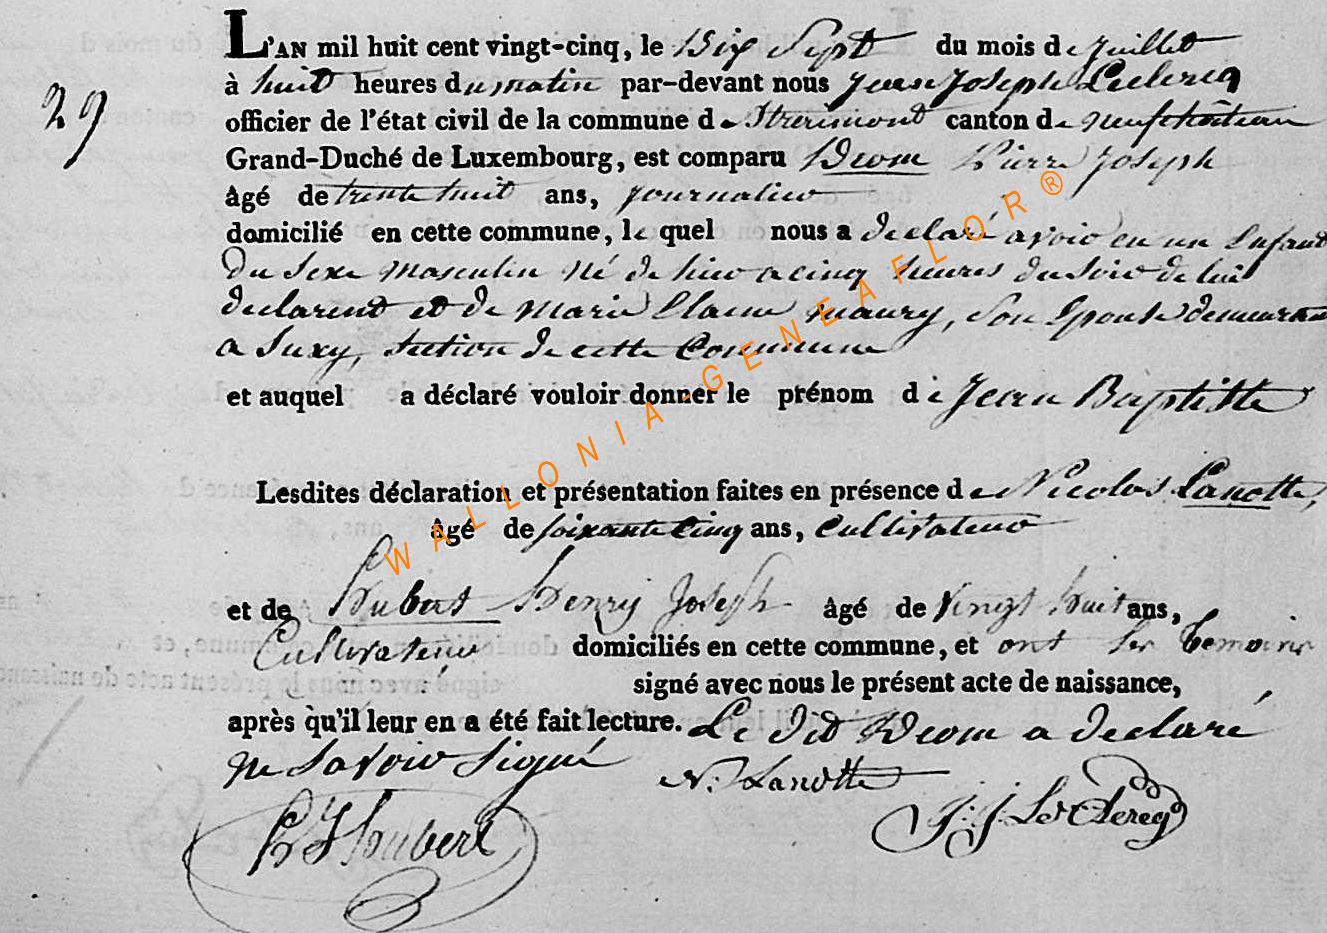 29
L'AN mil huit cent vingt-cinq, le Dix Sept du mois de juillet
à huit heures du matin par-devant nous jean joseph Leclercq
officier de l'état civil de la commune de Straimont canton de neufchâteau
Grand-Duché de Luxembourg, est comparu Deom Pierre joseph
âgé de trente huit ans, journalier
domicilié en cette commune, le quel nous a déclaré avoir eu un Enfant
du sexe masculin né de hier a cinq heures du soir de lui
declarent et de Marie maury, son Epouse demeurant
a Suxy, section de cette Commune
et auquel a déclaré vouloir donner le prénom de jean Baptiste
Lesdites déclaration et présentation faites en présence de Nicolas Lanotte,
âgé de soixante cinq ans, Cultivateur
et de Hubert Henry joseph âgé de vingt huit ans,
Cultivateur domiciliés en cette commune, et ont les temoins
signé avec nous le présent acte de naissance,
après qu'il leur en a été fait lecture. Le dit Deom a declaré
ne savoir signé N. Lanotte
H J Hubert J: J LeClercq
WALLONIA-GENEAFLOR®